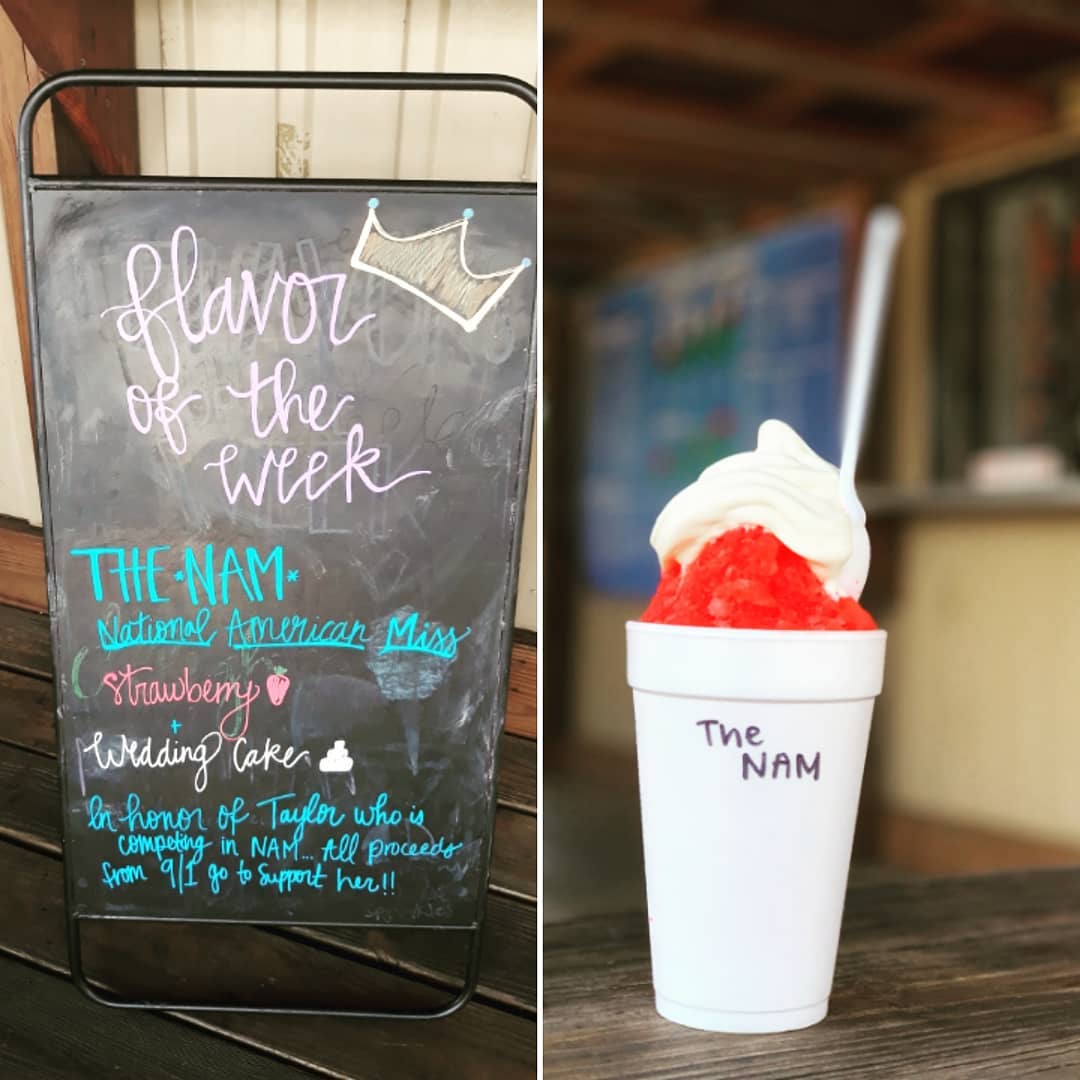 flavor
of the
week
THE *NAM*
National American Miss
Strawberry
+
Wedding Cake
In honor of Taylor who is
competing in NAM... All proceeds
from 9/1 go to support her!!
The
NAM